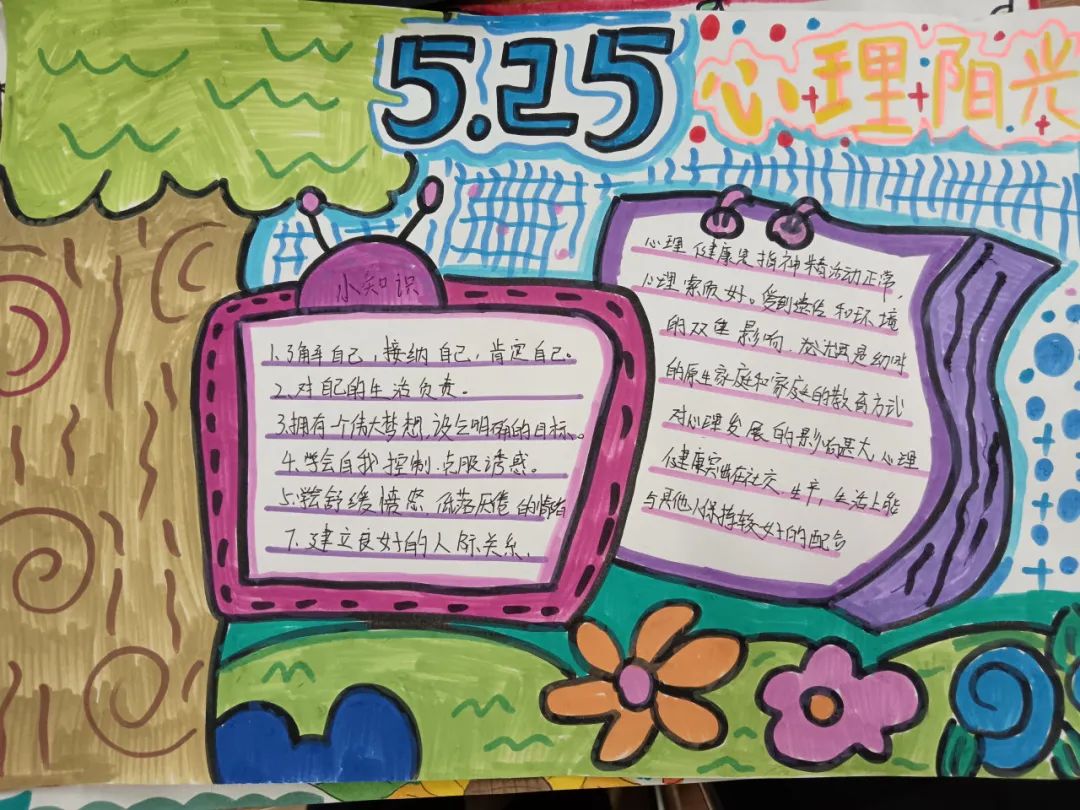 5.25
心理阳光
小知识
1.了解自己，接纳自己，肯定自己。
2.对自己的生活负责。
3.拥有一个伟大梦想，设立明确的目标。
4.学会自我控制.克服诱惑。
5.学会舒缓愤怒 低落厌倦的情绪
7.建立良好的人际关系.
心理健康是指神精活动正常，
心理素质好。受到遗传和环境
的双重影响.尤其是幼时
的原生家庭和家庭的教育方式
对心理发展的影响甚大 心理
健康突出在社交 生产，生活上能
与其他人保持较好的配合